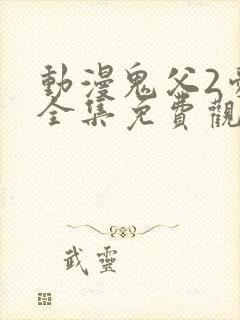 動漫鬼父2
全集免費觀
武靈